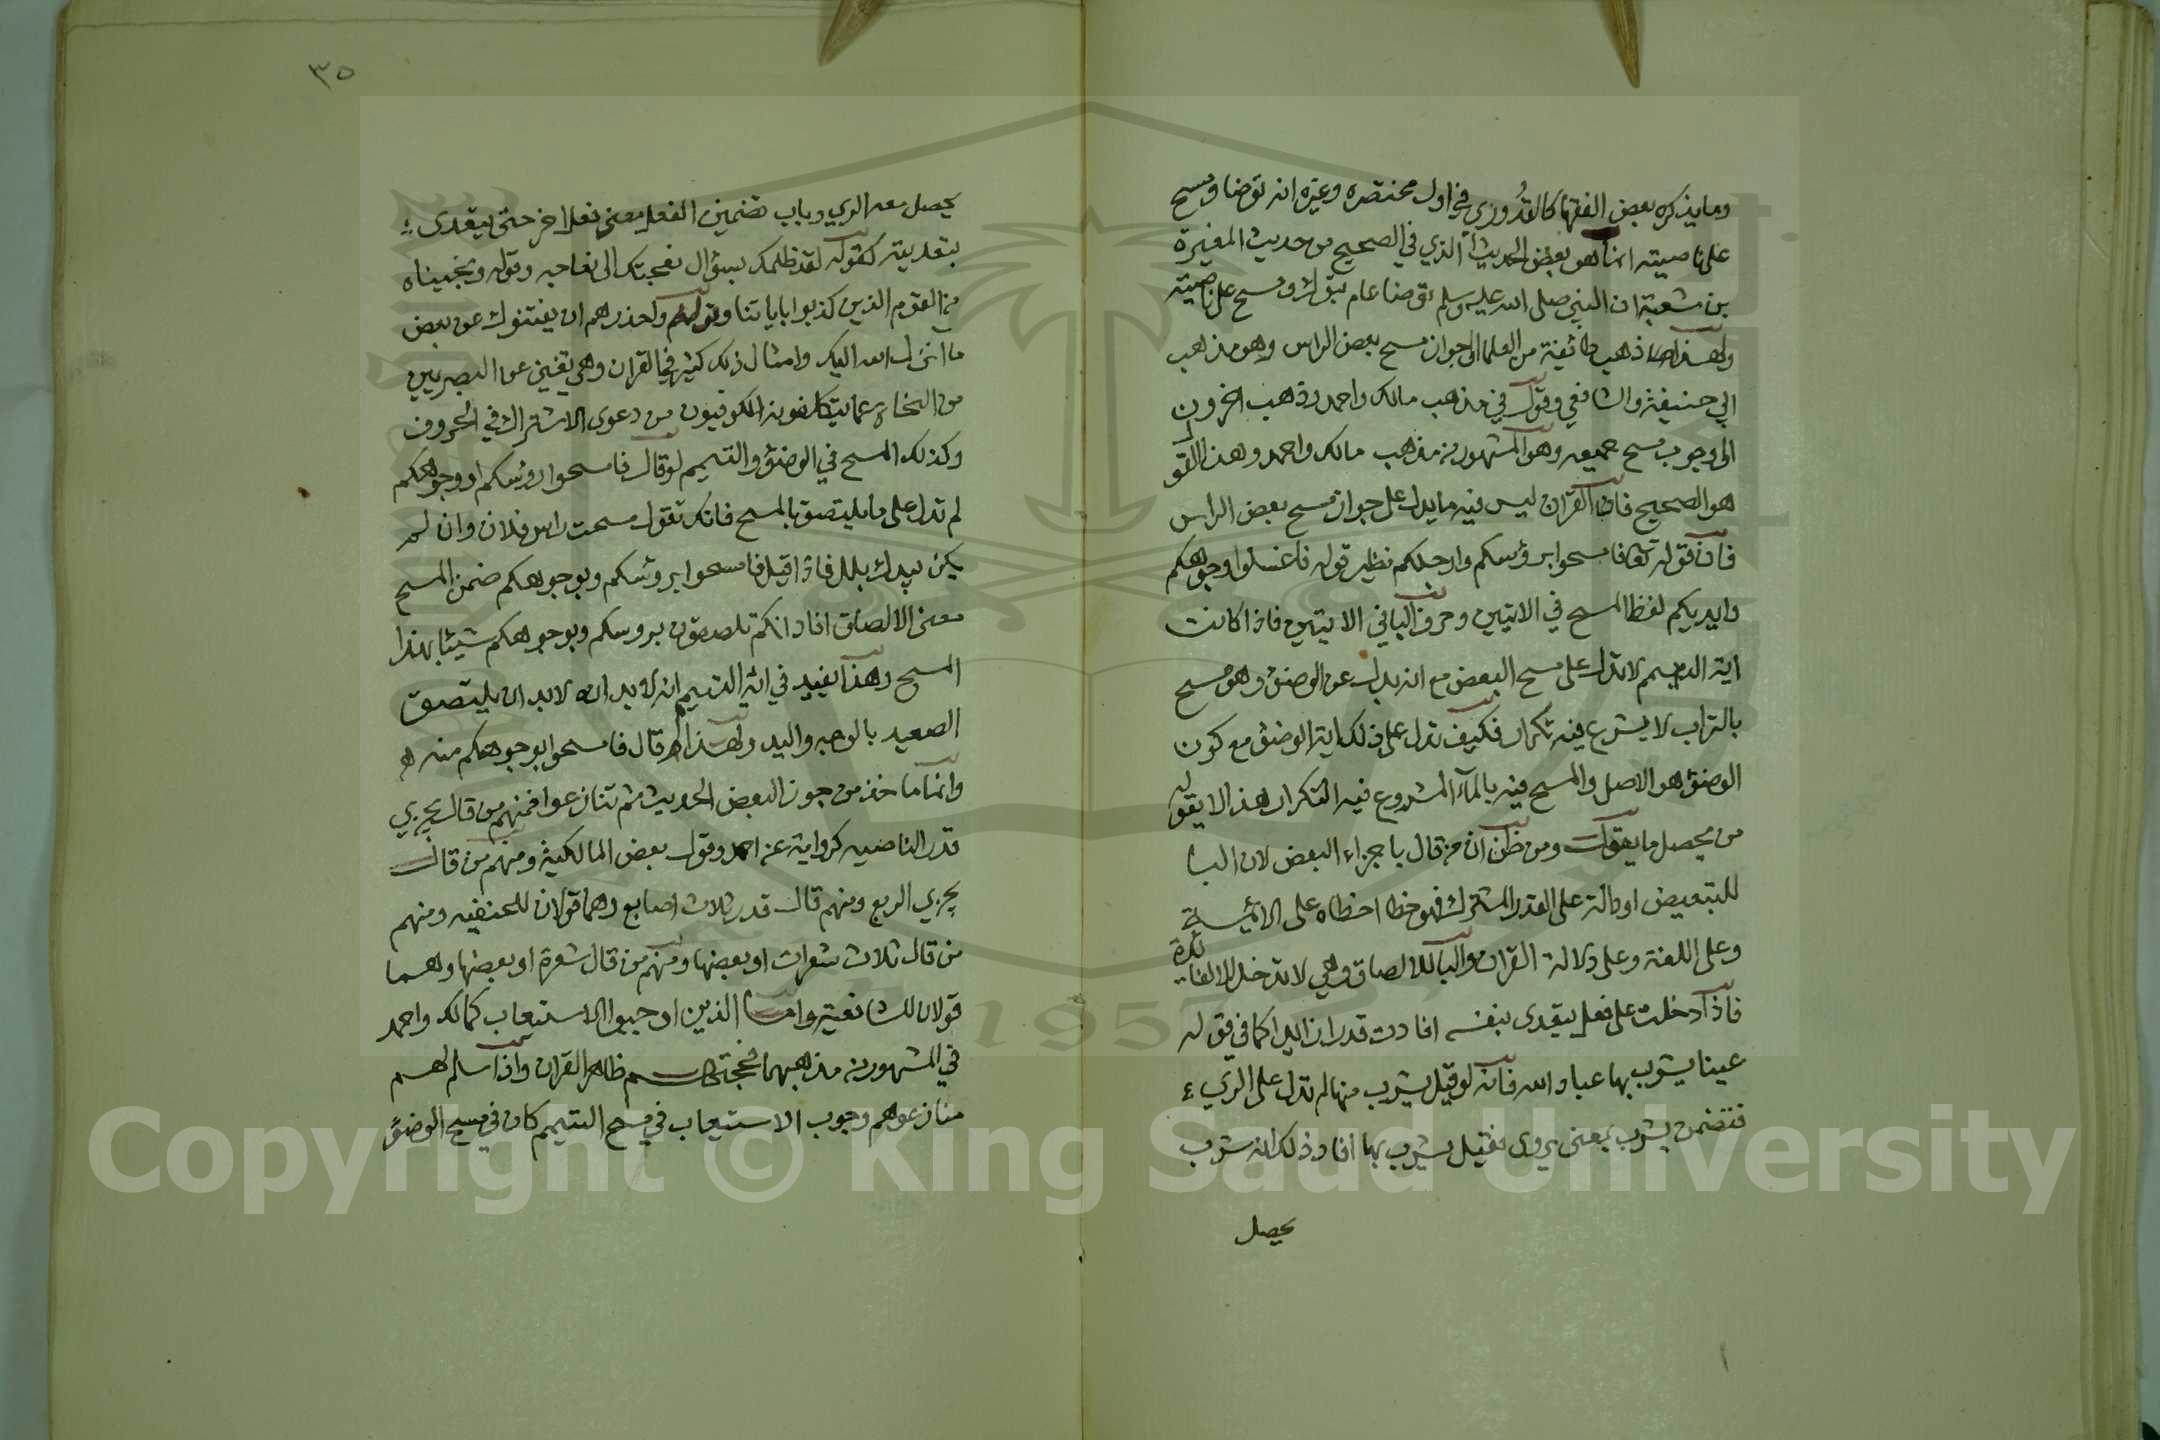 وما يذكره بعض الفقها كالقدوري في اول مختصره وغيره انه توضا ومسح
على ناصيته انما هو بعض الحديث الذي في الصحيح من حديث المغيرة
بن شعبة ان النبي صلى الله عليه وسلم توضا عام تبوك ومسح على ناصيته
ولهذا ذهب طائفة من العلما الى جواز مسح بعض الراس وهو مذهب
ابي حنيفة والشافعي وقول في مذهب مالك واحمد وذهب اخرون
الى وجوب مسح جميعه وهو المشهور من مذهب مالك واحمد وهذا القول
هو الصحيح فان القران ليس فيه ما يدل على جواز مسح بعض الراس
فان قوله تعا فامسحوا برؤسكم وارجلكم نظير قوله فاغسلوا وجوهكم
وايديكم لفظ المسح في الايتين وحرف البا في الايتين فاذا كانت
اية التيمم لا تدل على مسح البعض مع انه بدل عن الوضؤ وهو مسح
بالتراب لا يشرع فيه تكرار فكيف تدل على ذلك اية الوضؤ مع كون
الوضؤ هو الاصل والمسح فيه بالمآء المشروع فيه التكرار هذا لا يقوله
من يحصل ما يقول ومن ظن ان من قال باجزاء البعض لان البا
للتبعيض او دالة على القدر المشترك فهو خطا اخطاه على الائمة
وعلى اللغة وعلى دلالة القران والبا للالصاق وهي لا تدخل الا لفايدة
فاذا دخلت على فعل يتعدى بنفسه افادت قدرا زايدا كما في قوله
عينا يشرب بها عباد الله فانه لو قيل يشرب منها لم تدل على الري
فتضمن يشرب بمعنى يروى فقيل يشرب بها افاد ذلك انه شرب
يحصل
٣٥
يحصل معه الري وباب تضمين الفعل معنى فعل اخر حتى يتعدى
بتعديته كقوله لقد ظلمك بسؤال نعجتك الى نعاجه وقوله ونجيناه
من القوم الذين كذبوا باياتنا وقوله واحذرهم ان يفتنوك عن بعض
ما انزل الله اليك وامثال ذلك كثير في القران وهي تغني عن البصريين
من النحاه عما يتكلفونه الكوفيون من دعوى الاشتراك في الحروف
وكذلك المسح في الوضؤ والتيمم لو قال فامسحوا رؤسكم او وجوهكم
لم تدل على ما يلتصق بالمسح فانك تقول مسحت راس فلان وان لم
يكن بيدك بلل فاذا قيل فامسحوا برؤسكم وبوجوهكم ضمن المسح
معنى الالصاق افاد انكم تلصقون بروسكم وبوجوهكم شيئا بهذا
المسح وهذا يفيد في اية التيمم انه لا بد ان لا بد ان يلتصق
الصعيد بالوجه واليد ولهذا قال فامسحوا بوجوهكم منه
وانما ماخذ من جوز البعض الحديث ثم تنازعوا فمنهم من قال يجزي
قدر الناصيه كرواية عن احمد وقول بعض المالكية ومنهم من قال
يجزي الربع ومنهم قال قدر ثلاث اصابع وهما قولان للحنفيه ومنهم
من قال ثلاث شعرات او بعضها ومنهم من قال شعرة او بعضها وهما
قولان للشافعية واما الذين اوجبوا الاستيعاب كمالك واحمد
في المشهور من مذهبهما فحجتهم ظاهر القران واذا سلم لهم
منازعوهم وجوب الاستيعاب في مسح التيمم كان في مسح الوضؤ
1957
Copyright © King Saud University